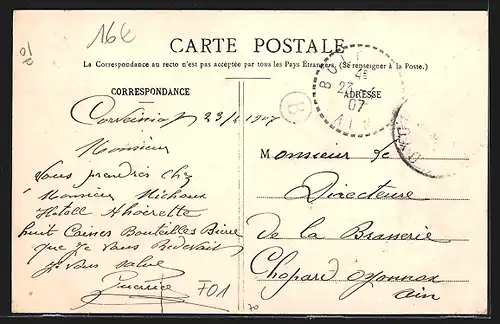 16€
CARTE POSTALE
La Correspondance au recto n'est pas acceptée par tous les Pays Étrangers. (Se renseigner à la Poste.)
CORRESPONDANCE
ADRESSE
23
07
AIN
B
23/1 1907
Monsieur
Vous prendres Chez
Monsieur Michaux
huit Caisses Bouteilles Biere
que je Vous Redevait
je Vous salue
701
Monsieur Le
Directeure
De la Brasserie
Chopard oyonnax
ain
70